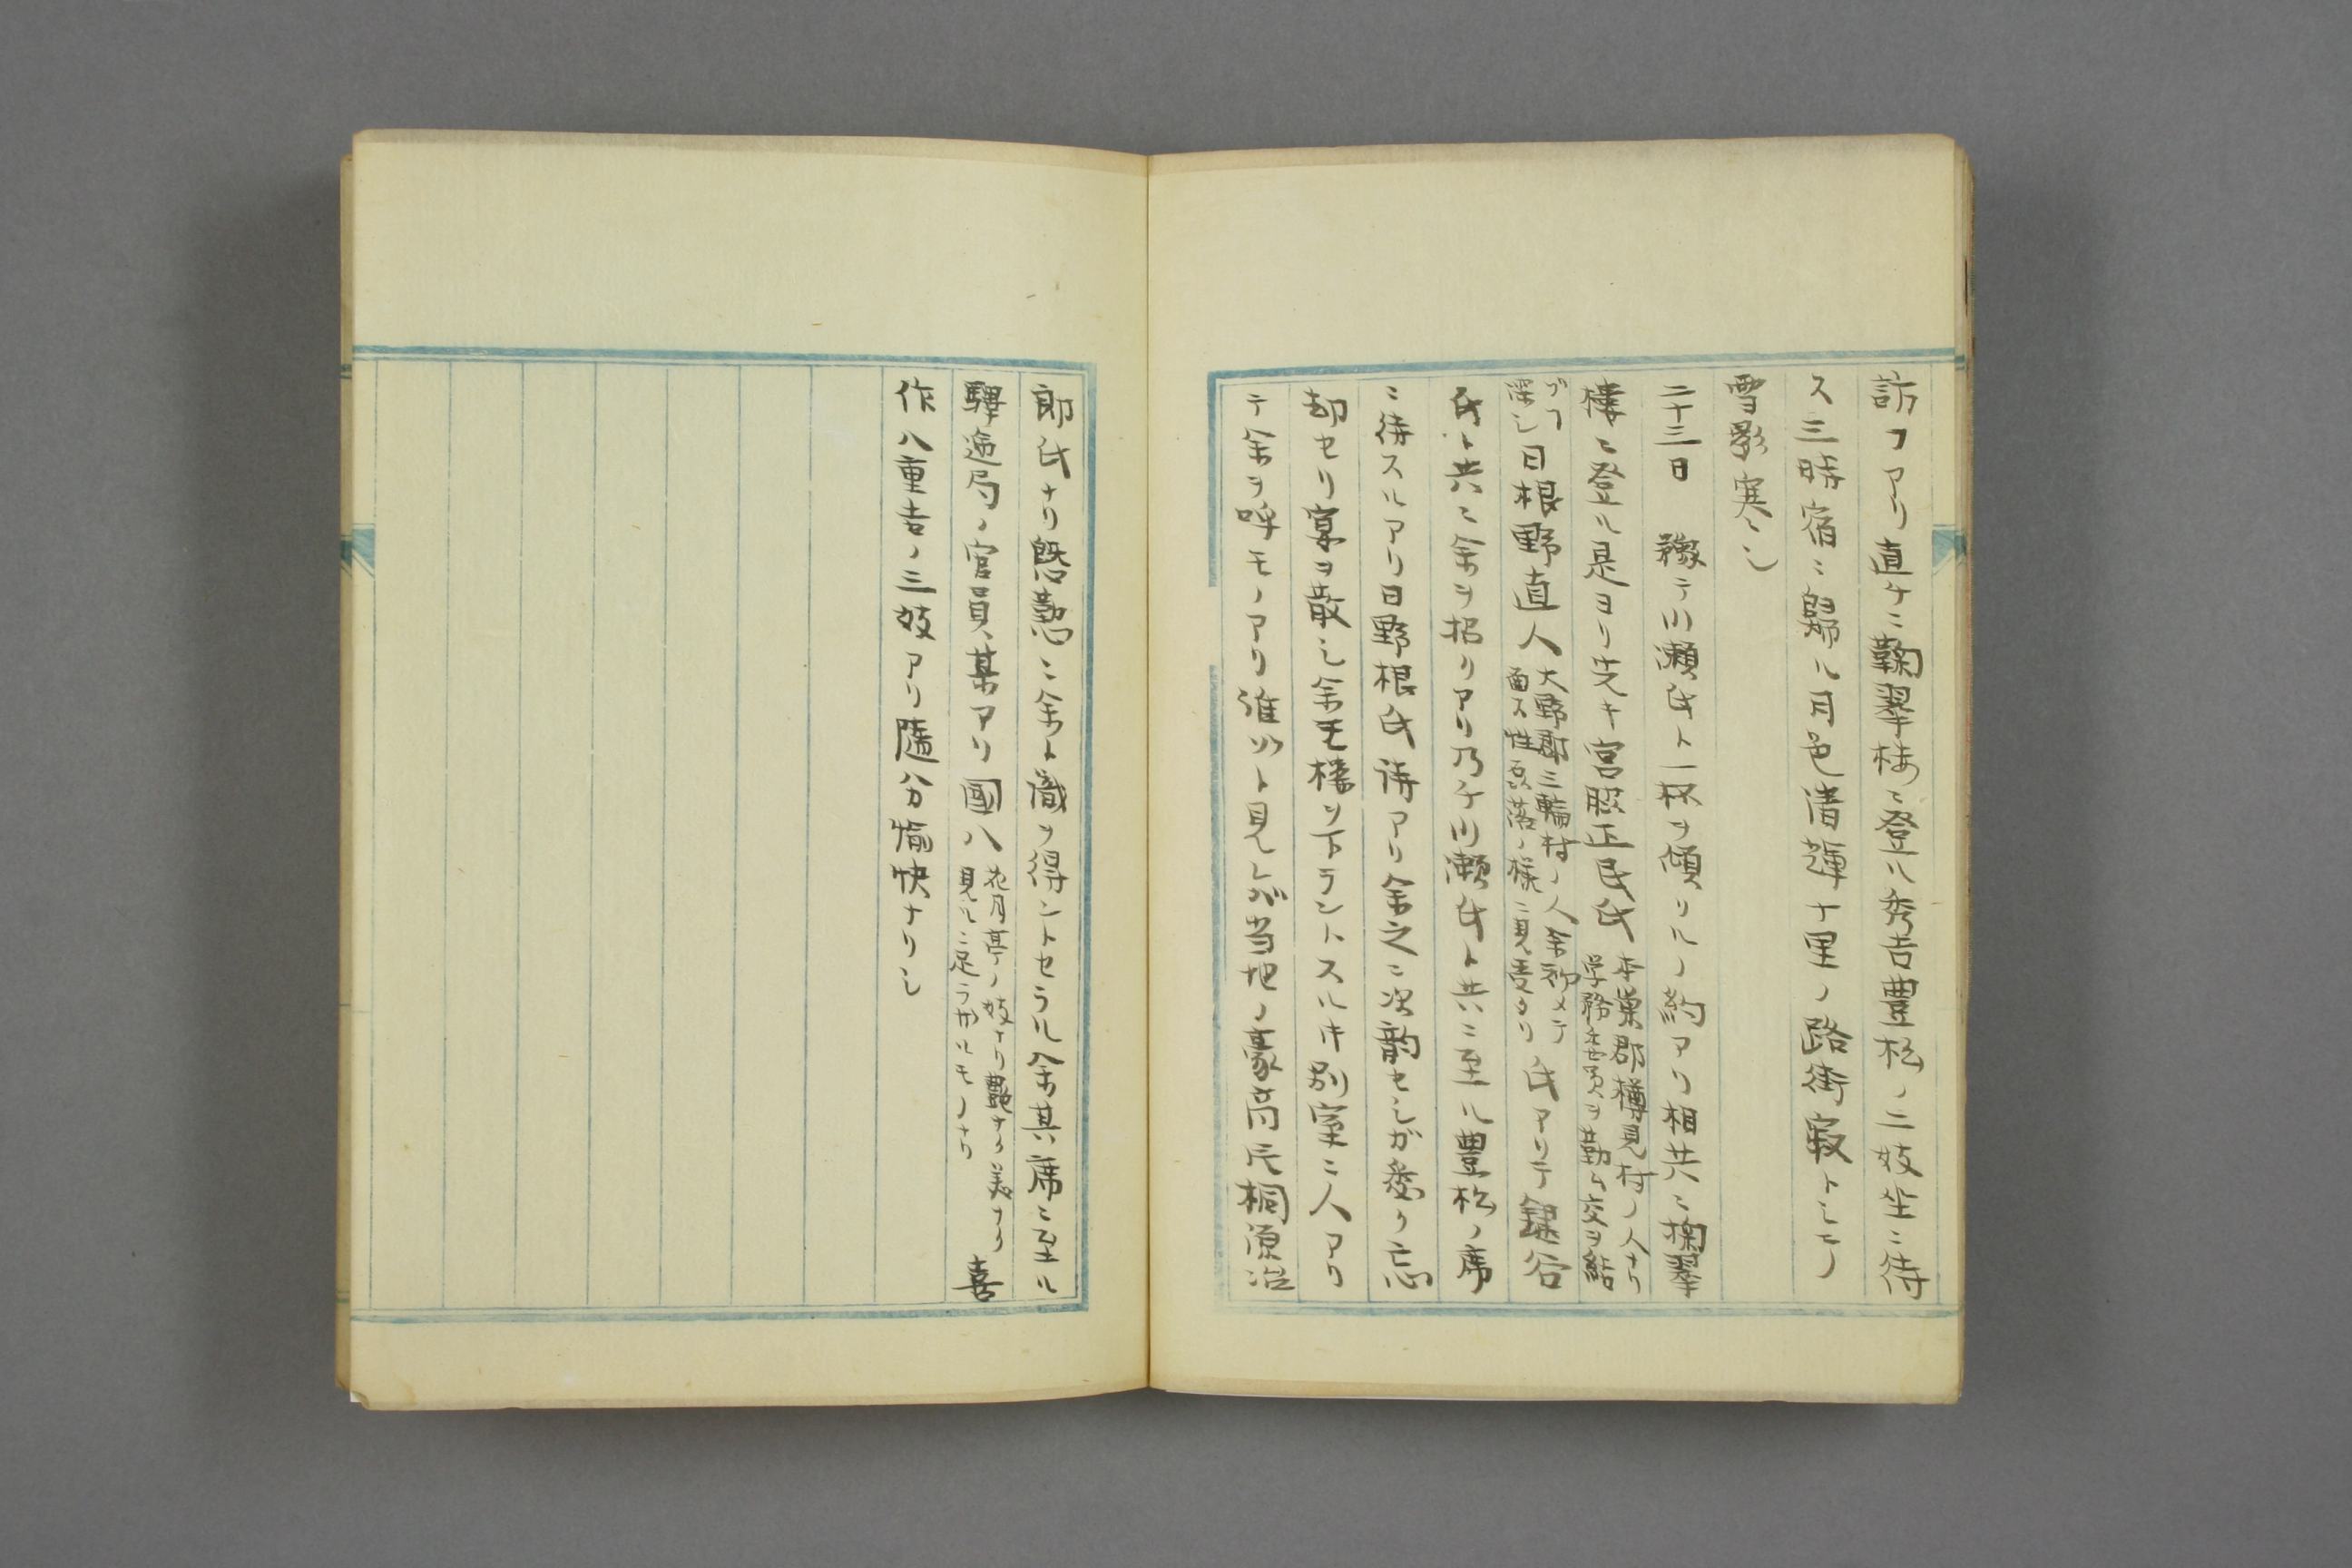 訪フアリ直ケニ鞠翠楼ニ登ル秀吉豊松ノ二妓坐ニ待
ス三時宿ニ歸ル月色清輝十里ノ路街寂トシテ
雪影寒シ
二十三日 豫テ川瀬氏ト一杯ヲ傾クルノ約アリ相共ニ掬翠
楼ニ登ル是ヨリ先キ宮脇正民氏
本巣郡樽見村ノ人ナリ
学務委員ヲ勤ム交ヲ結
ブフ
深シ
日根野直人
大野郡三輪村ノ人余初メテ
面ス性磊落ノ様ニ見受タリ
ノ氏アリテ鍵谷
氏ト共ニ余ヲ招クアリ乃チ川瀬氏ト共ニ至ル豊松ノ席
ニ待スルアリ日野根氏詩アリ余之ニ次韻セシガ悉ク忘
却セリ宴ヲ散シ余モ楼ヲ下ラントスル井別室ニ人アリ
テ余ヲ呼モノアリ誰ゾト見シガ当地ノ豪商氏桐原
郎氏ナリ慇懃ニ余ト識ヲ得ントセラル余其席ニ至ル
驛逓局ノ官員某アリ國八
花月亭ノ妓ナリ艶ナリ美ナリ
見ルニ足ラザルモノナリ
喜
作八重吉ノ三妓アリ隨分愉快ナリシ